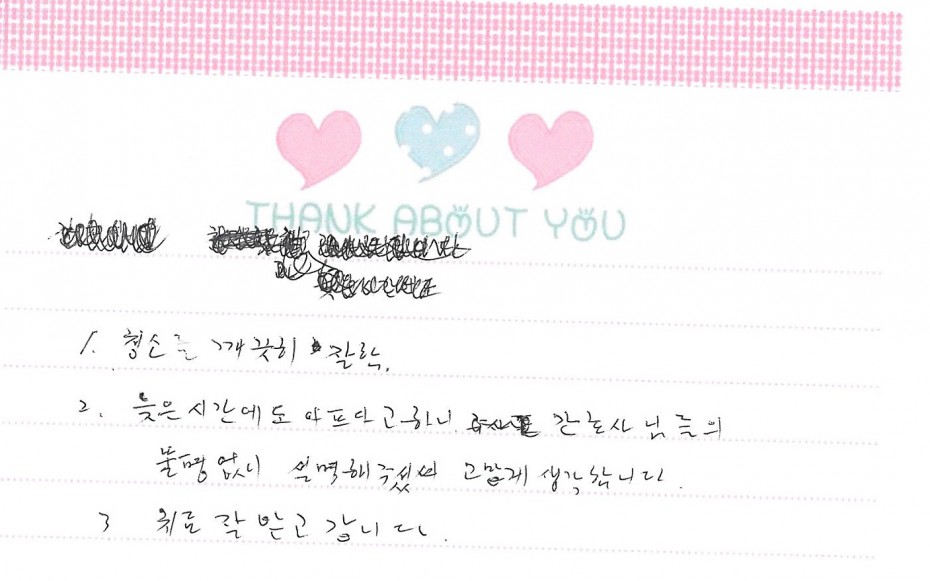 THANK ABOUT YOU
1. 청소를 깨끗히 잘함.
2. 늦은 시간에도 아프다고 하니 간호사님들의
불평없이 설명해주셔서 고맙게 생각합니다.
3 치료 잘 받고 갑니다.